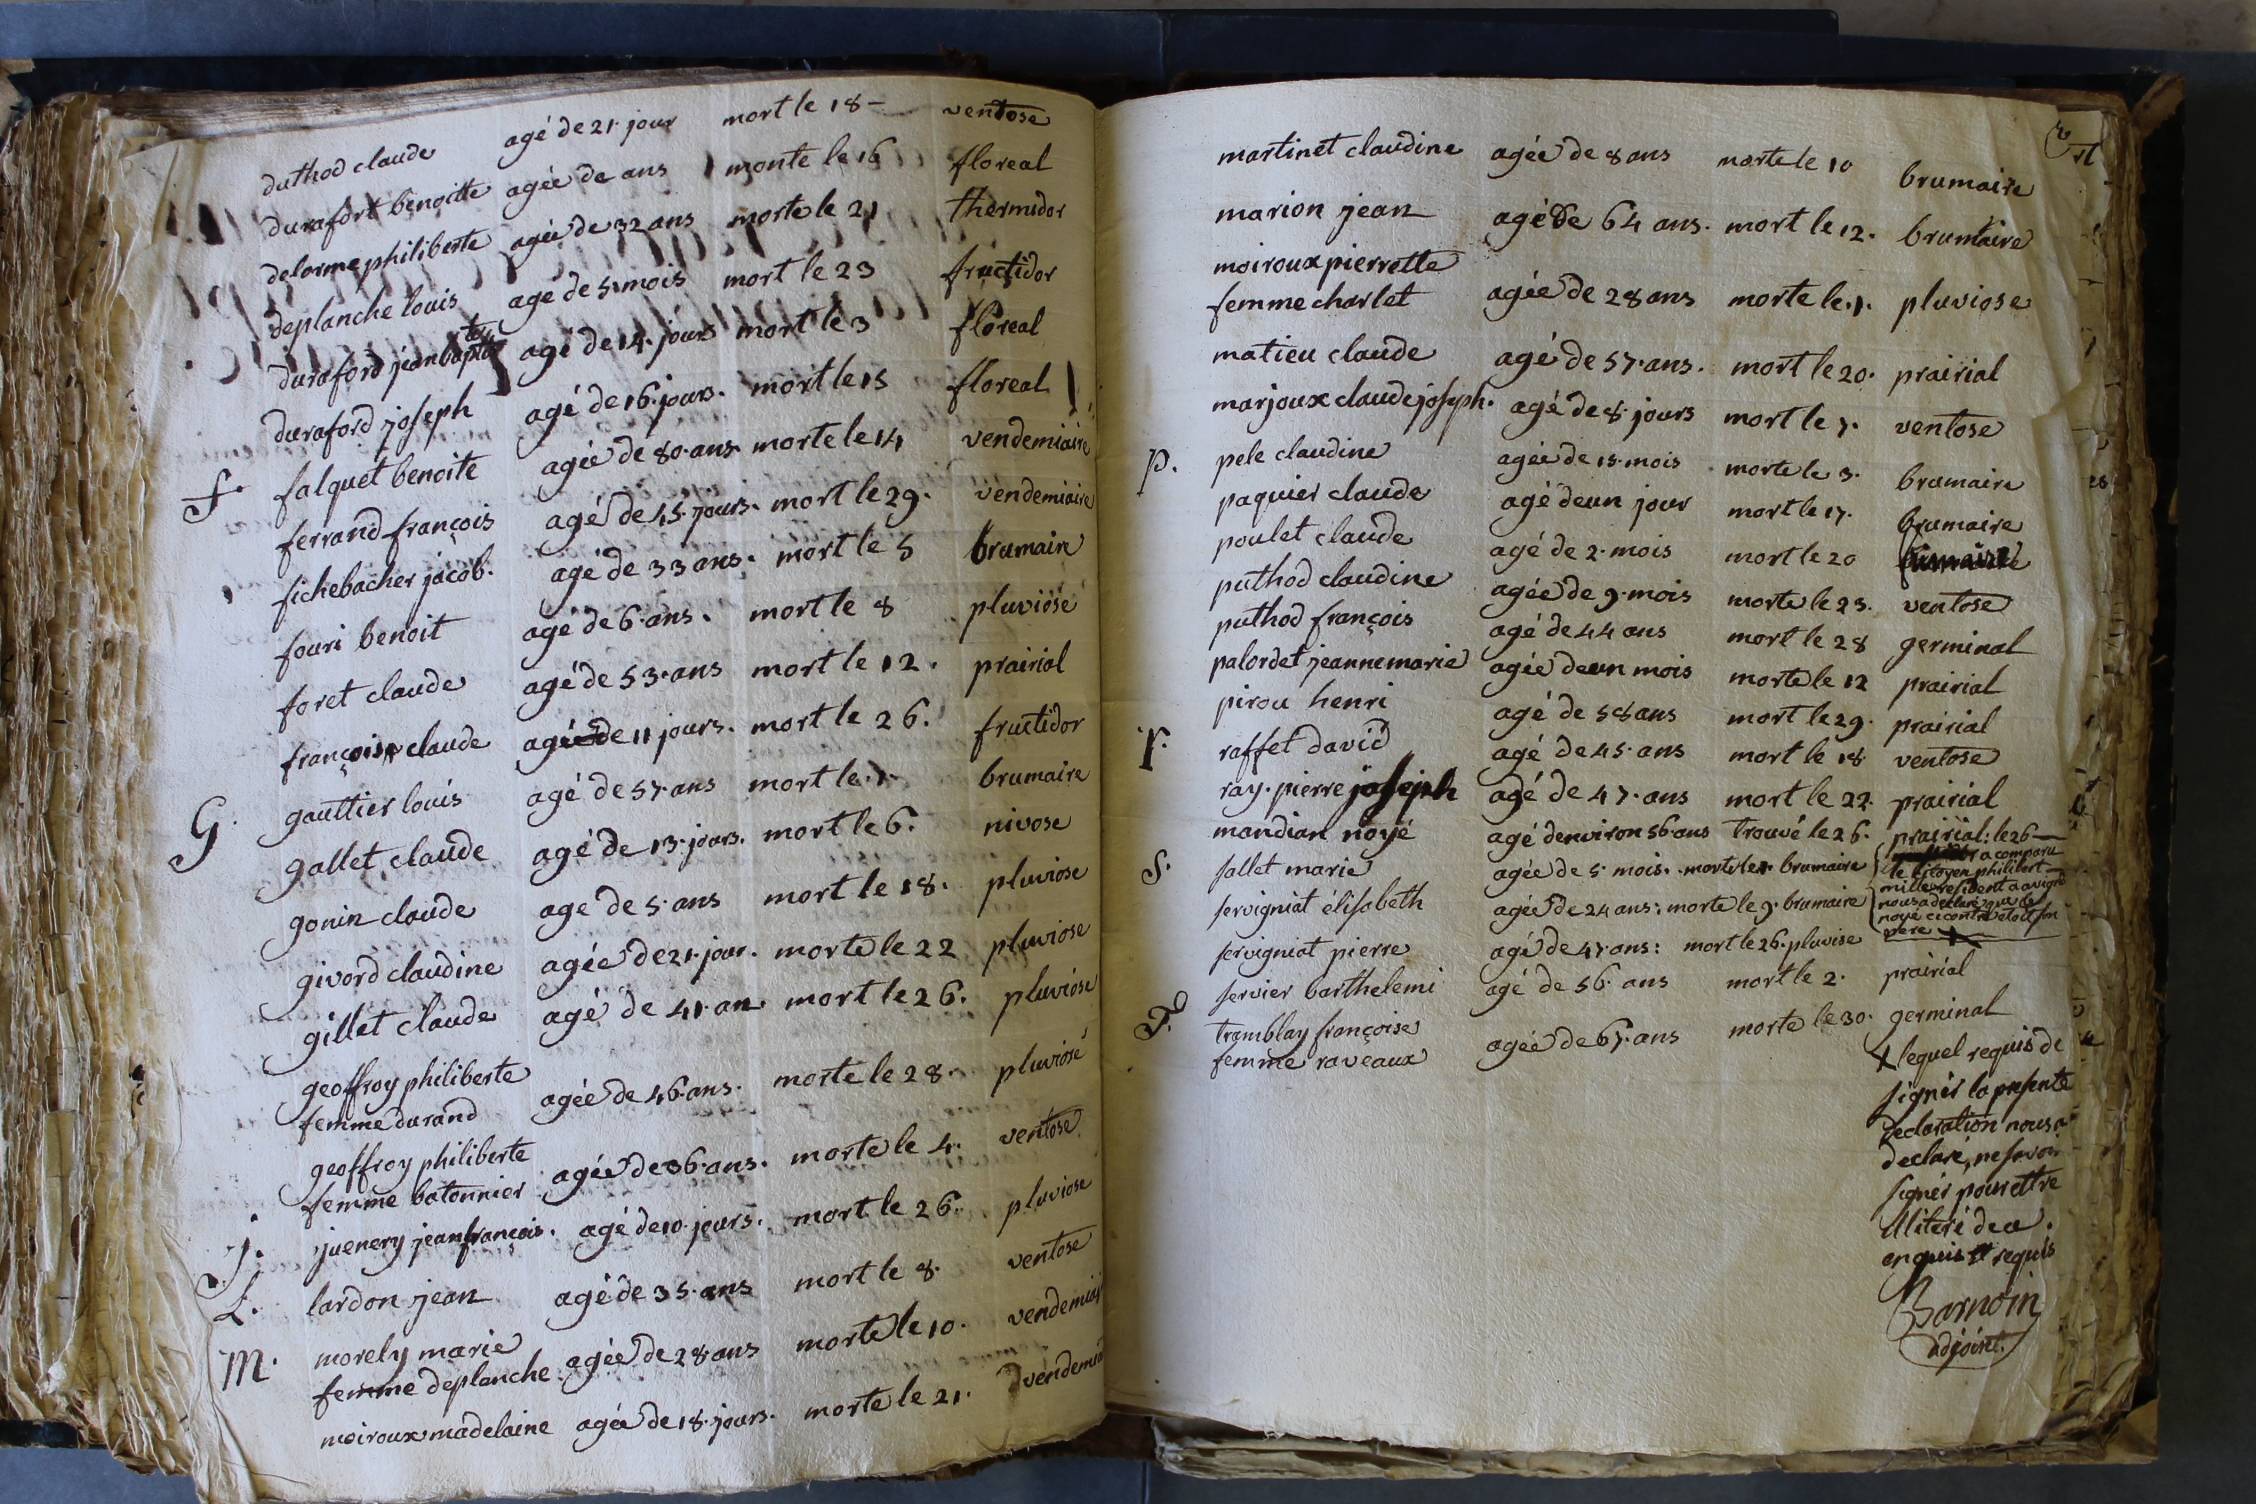 duthod claude agé de 21 jour mort le 18 – ventose
durafort benoitte agée de ans morte le 16 floreal
delorme philiberte agée de 32 ans morte le 21 thermidor
deplanche louis agé de 5 mois mort le 23 fructidor
duraford jean bapte agé de 14 jours mort le 3 floreal
duraford joseph agé de 16 jours. mort le 15 floreal
f. falquet benoite agée de 80 ans morte le 14 vendemiaire
ferrand françois agé de 15 jours. mort le 29. vendemiaire
fichebacher jacob. agé de 33 ans. mort le 5 brumaire
fouri benoit agé de 6 ans. mort le 8 pluviose
foret claude agé de 53 ans mort le 12. prairial
françois claude agé de 11 jours. mort le 26. fructidor
G. gauttier louis agé de 57 ans mort le 1 brumaire
gallet claude agé de 13 jours. mort le 6. nivose
gonin claude agé de 5 ans mort le 18. pluviose
givord claudine agée de 21 jour. morte le 22 pluviose
gillet claude agé de 41 an. mort le 26. pluviose
geoffroy philiberte
femme durand agée de 46 ans. morte le 28. pluviose
geoffroy philiberte
femme batonnier agée de 36 ans. morte le 4. ventose
j. juenery jean françois. agé de 10 jours. mort le 26. pluviose
L. lardon jean agé de 35 ans mort le 8. ventose
M. morely marie
femme deplanche agée de 28 ans morte le 10. vendemiai
moiroux madelaine agée de 18 jours. morte le 21. vendemi
martinet claudine agée de 8 ans morte le 10 brumaire
marion jean agé de 64 ans. mort le 12. brumaire
moiroux pierrette
femme charlet agée de 28 ans morte le 1. pluviose
matieu claude agé de 57 ans. mort le 20. prairial
marjoux claude joseph. agé de 8 jours mort le 7. ventose
p. pele claudine agée de 15 mois morte le 3. brumaire
paquier claude agé de un jour mort le 17. brumaire
poulet claude agé de 2 mois mort le 20 frimaire
puthod claudine agée de 9 mois morte le 23. ventose
puthod françois agé de 44 ans mort le 28 germinal
palordet jeanne marie agée de un mois morte le 12 prairial
pirou henri agé de 58 ans mort le 29. prairial
r. raffet david agé de 45 ans mort le 18 ventose
ray. pierre joseph agé de 47 ans mort le 22. prairial
mandian noyé agé denviron 56 ans trouvé le 26. prairial: le 26
a comparu
le citoyen philibert
millet resident a avign
nous a declaré que le
noyé ci contre etoit son
pere X
S. sallet marie agée de 5 mois. morte le 4. brumaire
servigniat élisabeth agée de 24 ans: morte le 9. brumaire
servigniat pierre agé de 47 ans: mort le 26. pluvise
servier barthelemi agé de 56 ans mort le 2. prairial
tramblay françoise
femme raveaux agée de 67 ans morte le 30. germinal
X lequel requis de
signer la presente
declaration nous a
declaré, ne savoir
signer pour ettre
illiteré de a.
enquis et requis
Barnoin
adjoint.